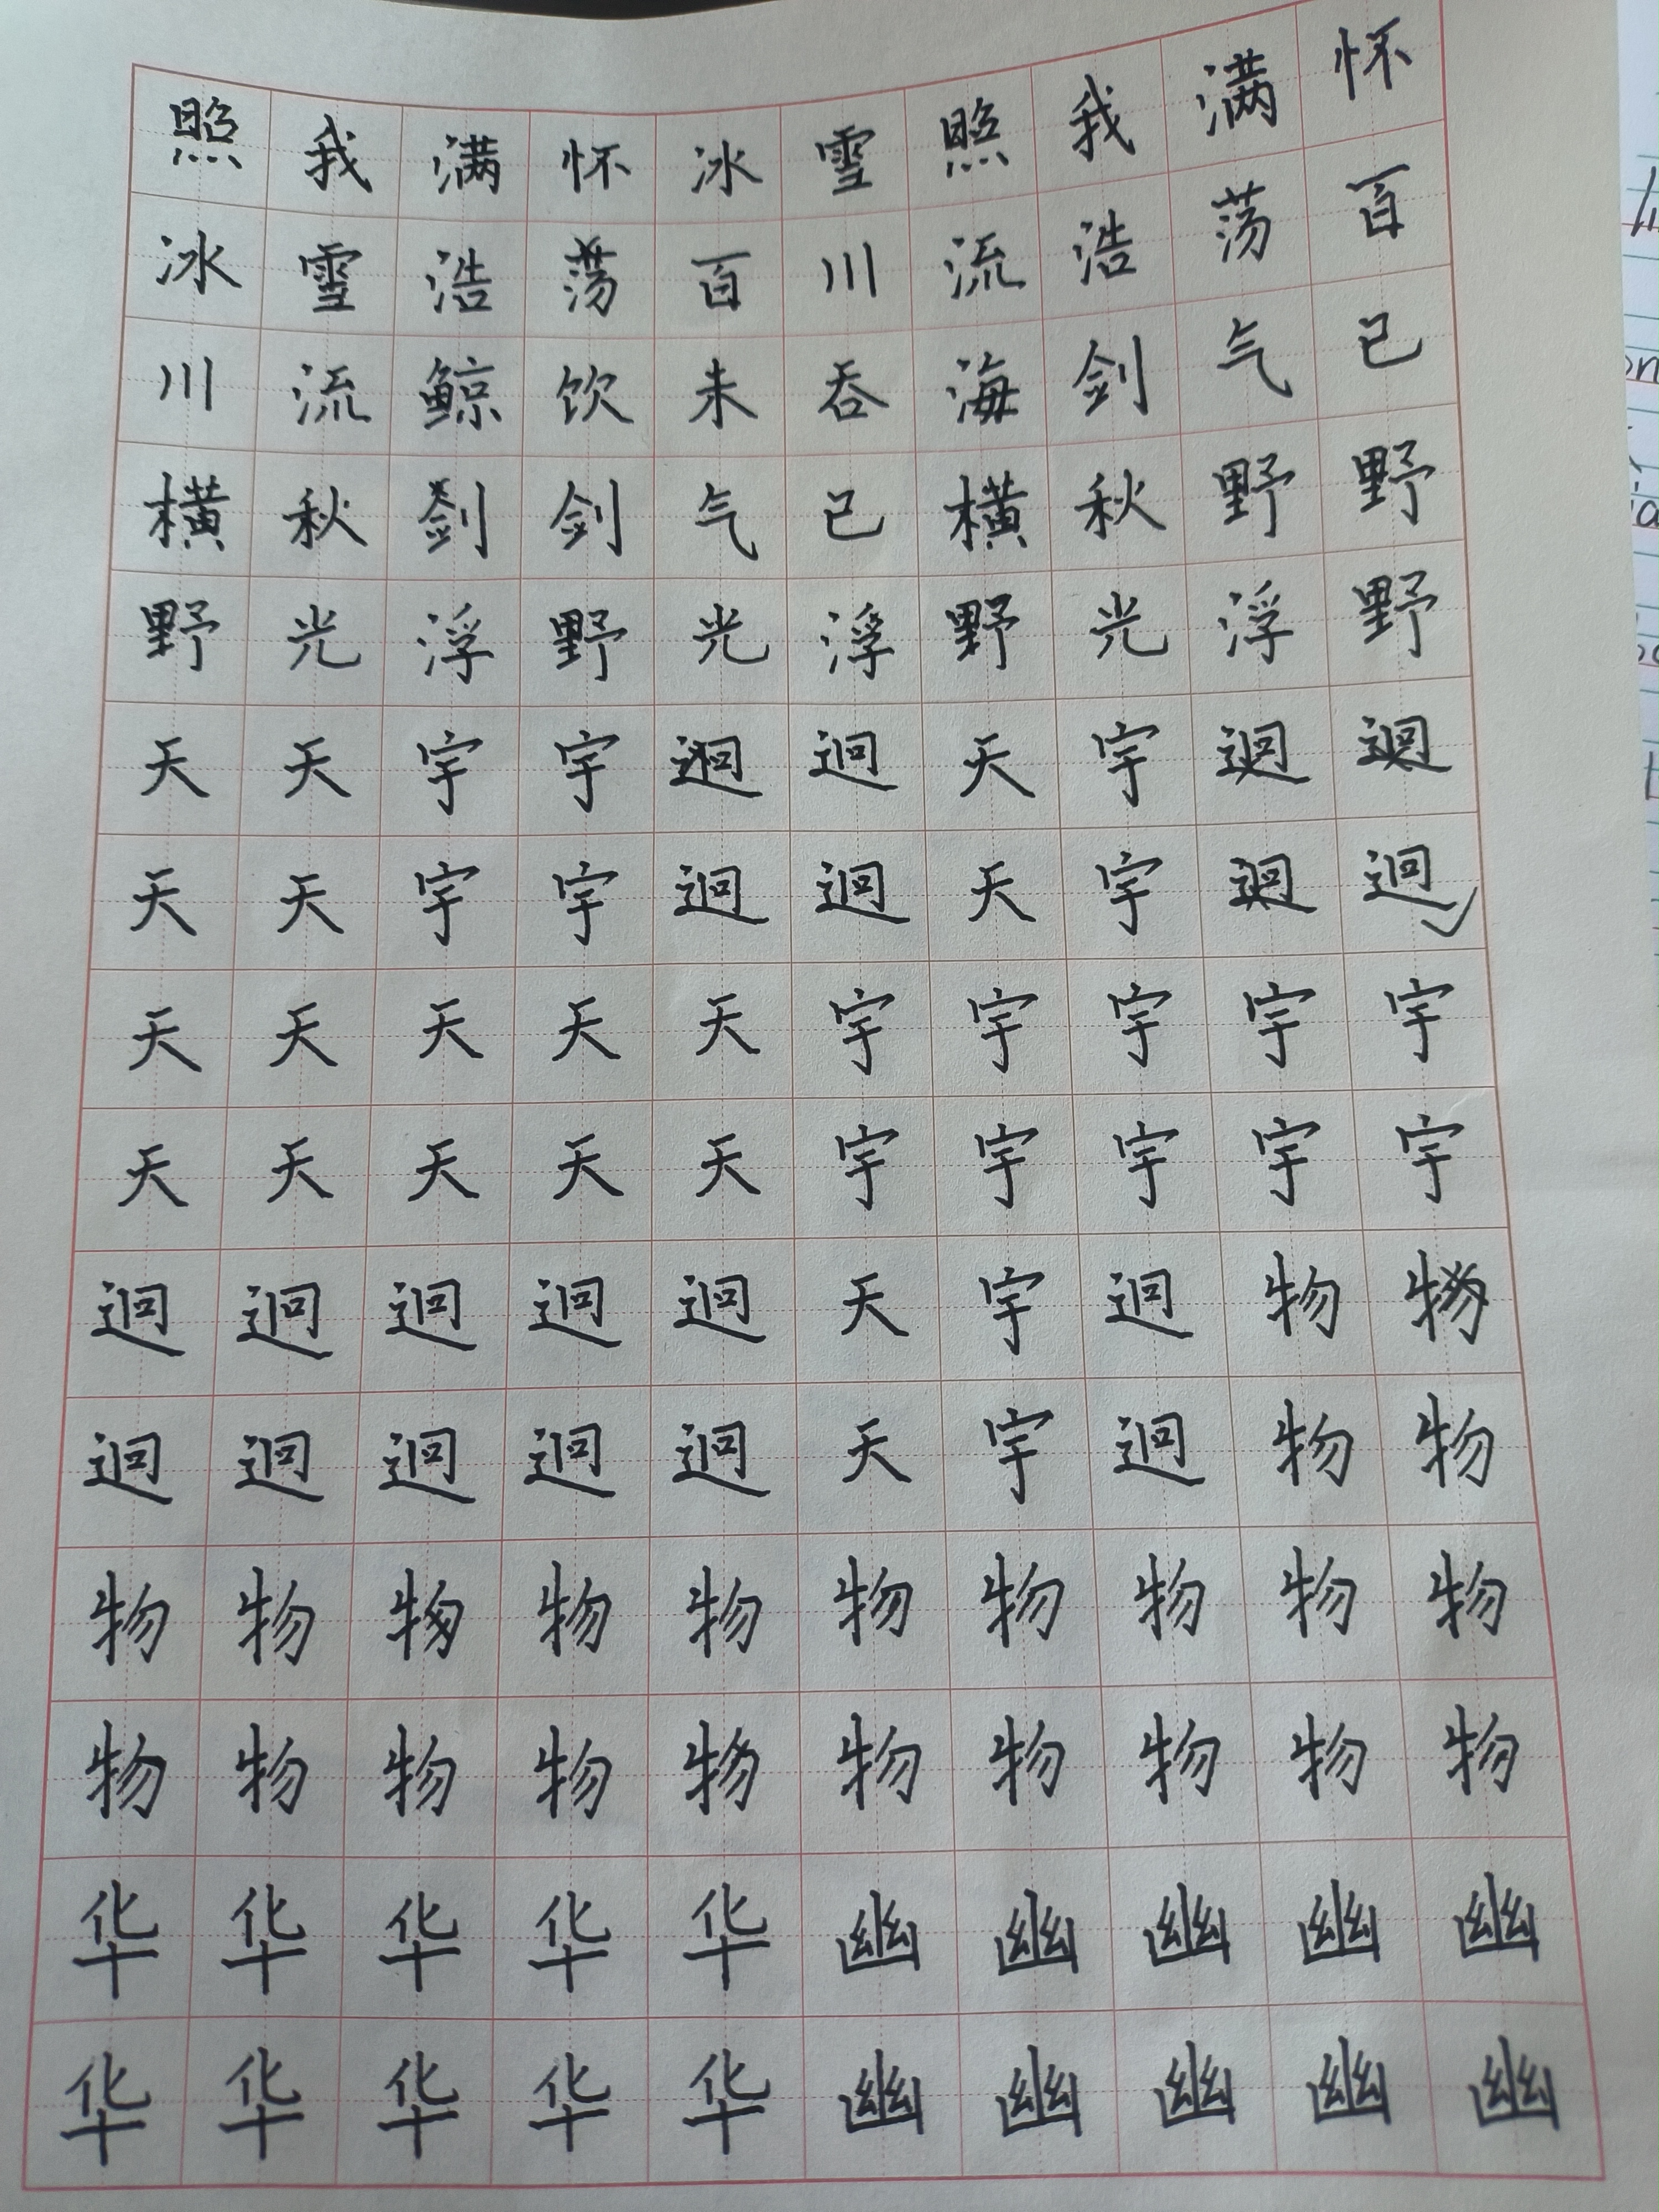 照我满怀冰雪照我满怀
冰雪浩荡百川流浩荡百
川流鲸饮未吞海剑气已
横秋剑剑气已横秋野野
野光浮野光浮野光浮野
天天宇宇迥迥天宇迥迥
天天宇宇迥迥天宇迥迥
天天天天天宇宇宇宇宇
天天天天天宇宇宇宇宇
迥迥迥迥迥天宇迥物物
迥迥迥迥迥天宇迥物物
物物物物物物物物物物
物物物物物物物物物物
华华华华华幽幽幽幽幽
华华华华华幽幽幽幽幽